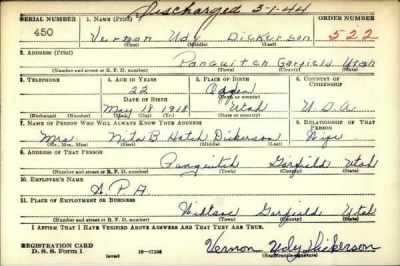 Discharged 3-1-44
SERIAL NUMBER 1. NAME (Print) ORDER NUMBER
450 Vernon Udy Dickerson 522
(First) (Middle) (Last)
2. ADDRESS (Print)
Panguitch Garfield Utah
(Number and street or R. F. D. number) (Town) (County) (State)
3. TELEPHONE 4. AGE IN YEARS 5. PLACE OF BIRTH 6. COUNTRY OF CITIZENSHIP
22 Ogden
DATE OF BIRTH (Town or county)
May 18 1918 Utah U.S.A
(Exchange) (Number) (Mo.) (Day) (Yr.) (State or country)
7. NAME OF PERSON WHO WILL ALWAYS KNOW YOUR ADDRESS 8. RELATIONSHIP OF THAT PERSON
Mrs. Nita B Hatch Dickerson Wife
(Mr., Mrs., Miss) (First) (Middle) (Last)
9. ADDRESS OF THAT PERSON
Panguitch Garfield Utah
(Number and street or R. F. D. number) (Town) (County) (State)
10. EMPLOYER'S NAME
11. PLACE OF EMPLOYMENT OR BUSINESS
Garfield Utah
(Number and street or R. F. D. number) (Town) (County) (State)
I AFFIRM THAT I HAVE VERIFIED ABOVE ANSWERS AND THAT THEY ARE TRUE.
REGISTRATION CARD
D. S. S. Form 1 Vernon Udy Dickerson
(Registrant's signature)